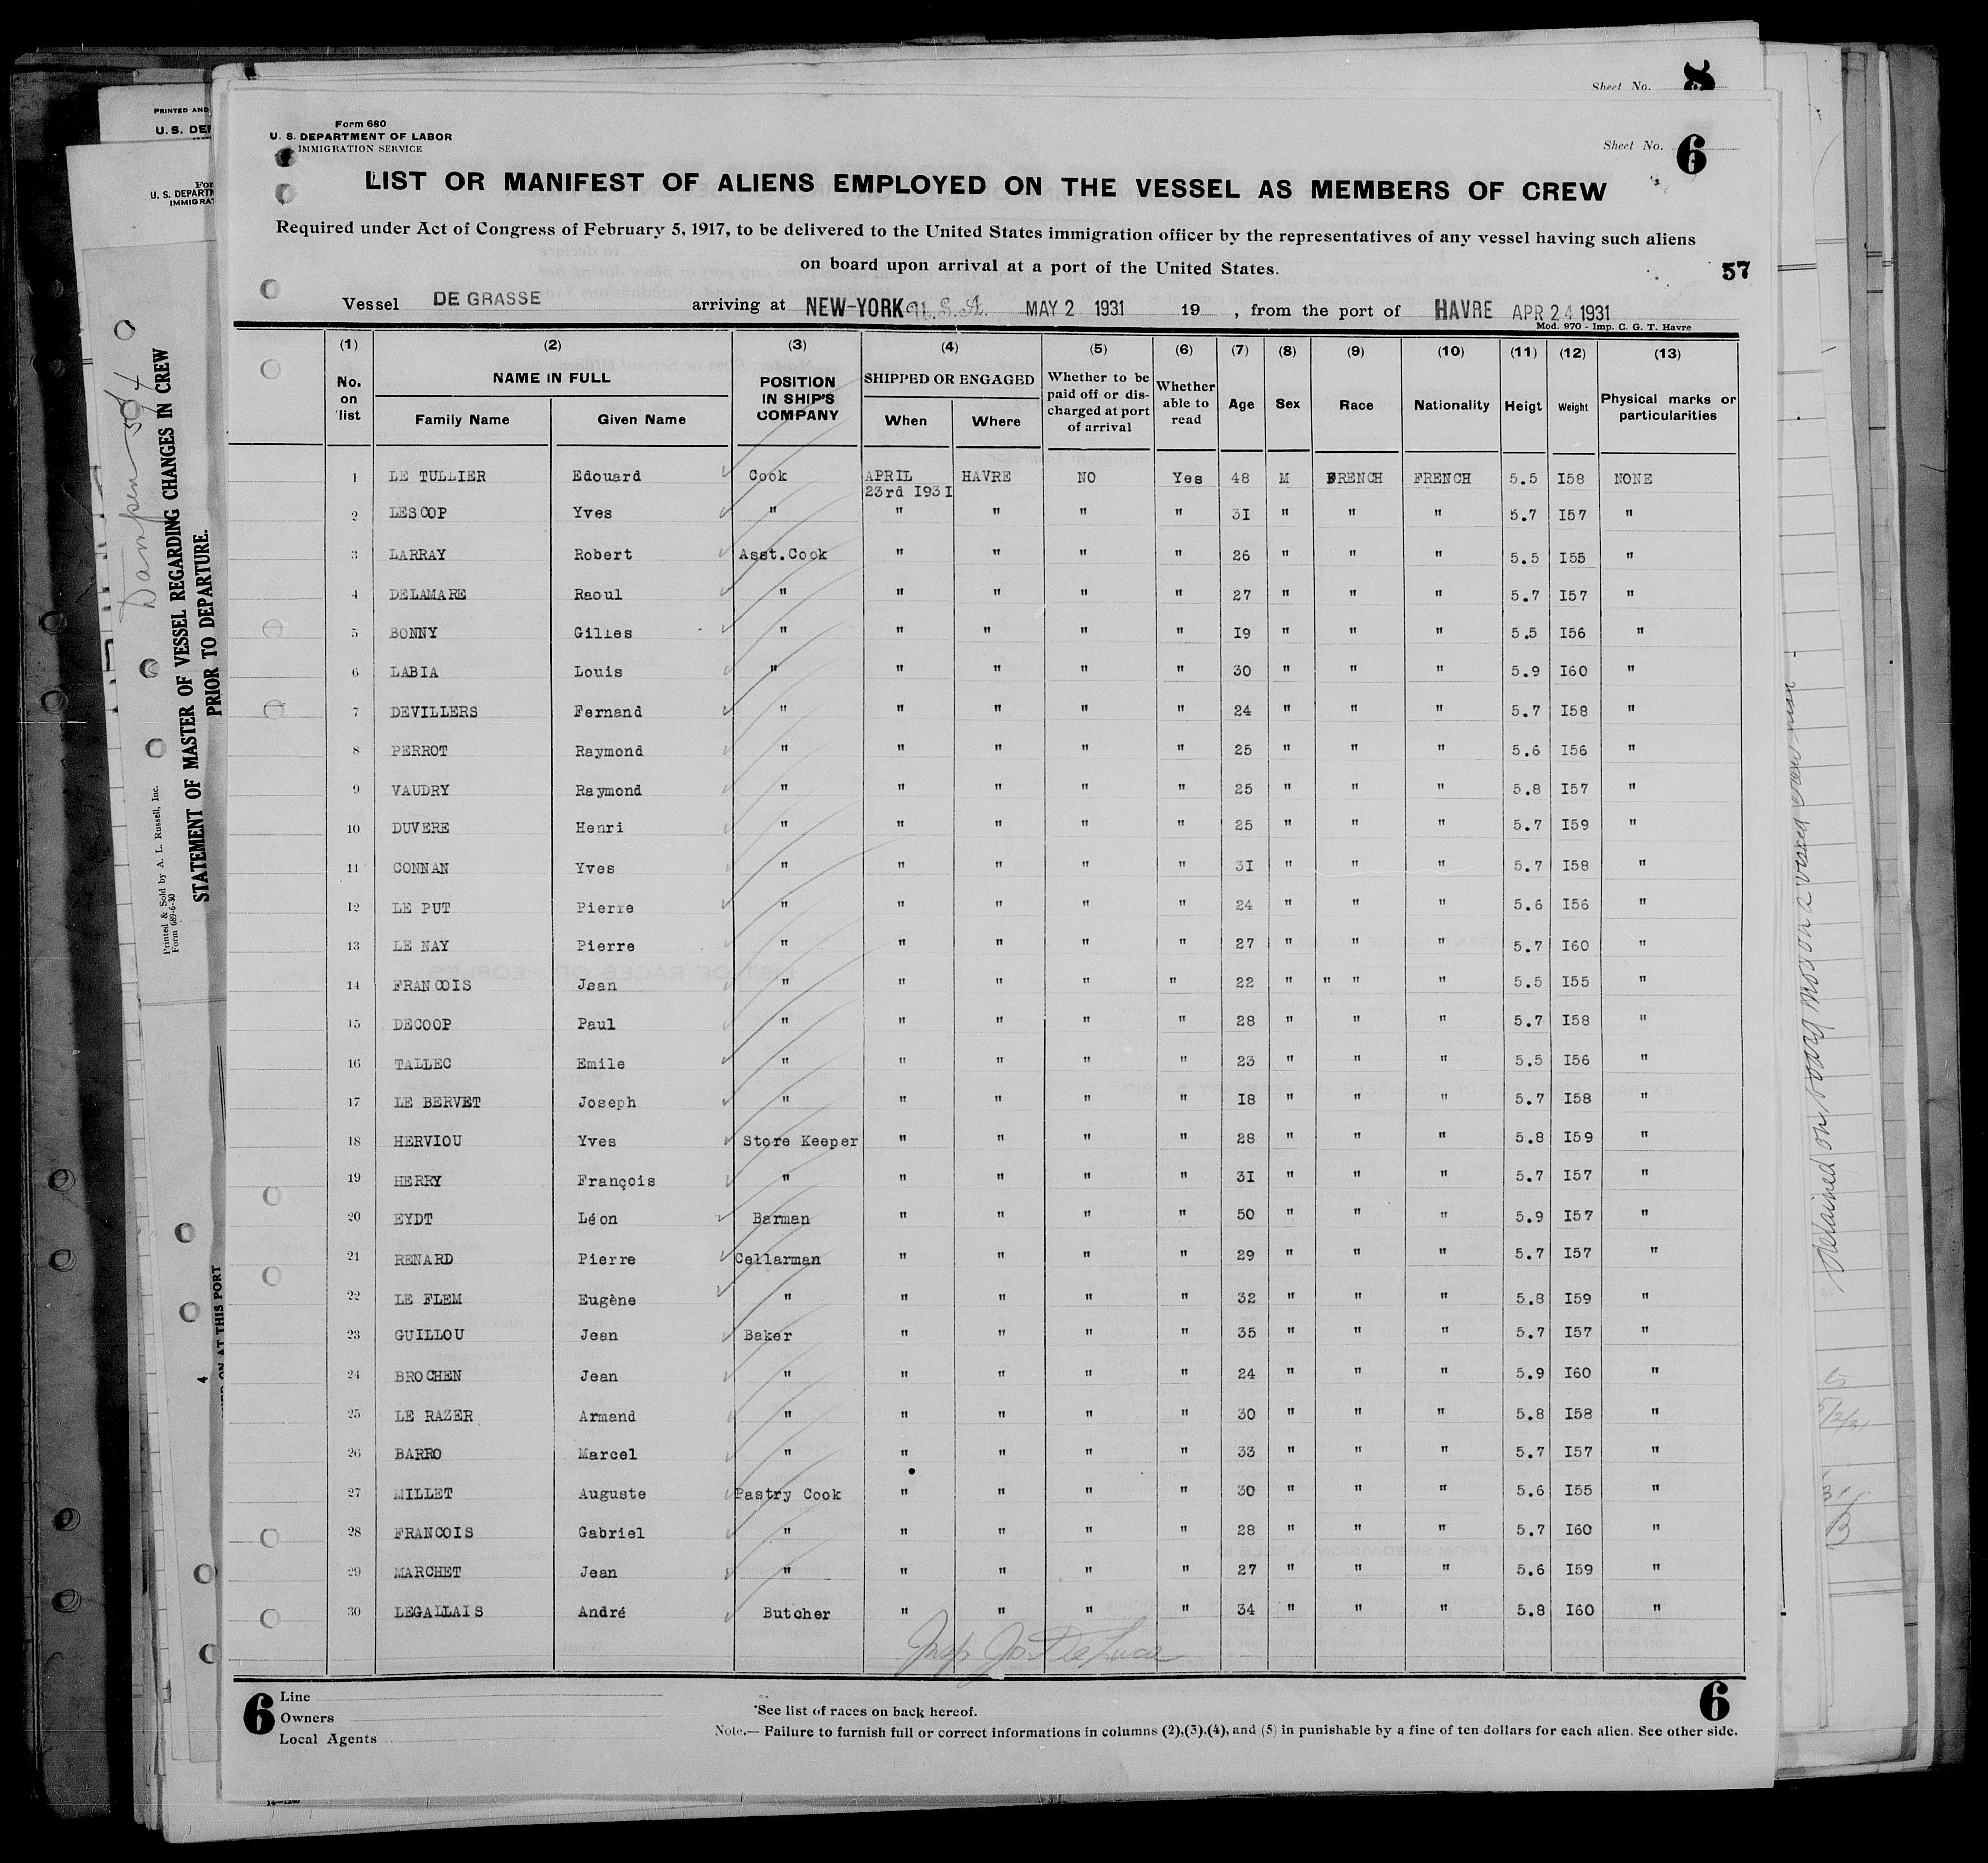 Sheet No. 8
PRINTED AND
U. S. DEP
Form 680
U. S. DEPARTMENT OF LABOR
IMMIGRATION SERVICE
Sheet No. 6
LIST OR MANIFEST OF ALIENS EMPLOYED ON THE VESSEL AS MEMBERS OF CREW
Required under Act of Congress of February 5, 1917, to be delivered to the United States immigration officer by the representatives of any vessel having such aliens
on board upon arrival at a port of the United States.
57
Vessel DE GRASSE arriving at NEW-YORK U.S.A. MAY 2 1931 19 , from the port of HAVRE APR 24 1931
Mod. 970 - Imp. C. G. T. Havre
(1) (2) (3) (4) (5) (6) (7) (8) (9) (10) (11) (12) (13)
No. on list NAME IN FULL Family Name Given Name POSITION IN SHIP'S COMPANY SHIPPED OR ENGAGED When Where Whether to be paid off or discharged at port of arrival Whether able to read Age Sex Race Nationality Heigt Weight Physical marks or particularities
1 LE TULLIER Edouard Cook APRIL 23rd I93I HAVRE NO Yes 48 M FRENCH FRENCH 5.5 I58 NONE
2 LESCOP Yves " " " " " 3I " " " 5.7 I57 "
3 LARRAY Robert Asst.Cook " " " " 26 " " " 5.5 I55 "
4 DELAMARE Raoul " " " " " 27 " " " 5.7 I57 "
5 BONNY Gilles " " " " " I9 " " " 5.5 I56 "
6 LABIA Louis " " " " " 30 " " " 5.9 I60 "
7 DEVILLERS Fernand " " " " " 24 " " " 5.7 I58 "
8 PERROT Raymond " " " " " 25 " " " 5.6 I56 "
9 VAUDRY Raymond " " " " " 25 " " " 5.8 I57 "
10 DUVERE Henri " " " " " 25 " " " 5.7 I59 "
11 CONNAN Yves " " " " " 3I " " " 5.7 I58 "
12 LE PUT Pierre " " " " " 24 " " " 5.6 I56 "
13 LE NAY Pierre " " " " " 27 " " " 5.7 I60 "
14 FRANCOIS Jean " " " " " 22 " " " " 5.5 I55 "
15 DECOOP Paul " " " " " 28 " " " 5.7 I58 "
16 TALLEC Emile " " " " " 23 " " " 5.5 I56 "
17 LE BERVET Joseph " " " " " I8 " " " 5.7 I58 "
18 HERVIOU Yves Store Keeper " " " " 28 " " " 5.8 I59 "
19 HERRY François " " " " " 3I " " " 5.7 I57 "
20 EYDT Léon Barman " " " " 50 " " " 5.9 I57 "
21 RENARD Pierre Cellarman " " " " 29 " " " 5.7 I57 "
22 LE FLEM Eugène " " " " " 32 " " " 5.8 I59 "
23 GUILLOU Jean Baker " " " " 35 " " " 5.7 I57 "
24 BROCHEN Jean " " " " " 24 " " " 5.9 I60 "
25 LE RAZER Armand " " " " " 30 " " " 5.8 I58 "
26 BARRO Marcel " " " " " 33 " " " 5.7 I57 "
27 MILLET Auguste Pastry Cook " " " " 30 " " " 5.6 I55 "
28 FRANCOIS Gabriel " " " " " 28 " " " 5.7 I60 "
29 MARCHET Jean " " " " " 27 " " " 5.6 I59 "
30 LEGALLAIS André Butcher " " " " 34 " " " 5.8 I60 "
Insp Jos De Luca
6 Line
Owners
Local Agents
*See list of races on back hereof.
Note.— Failure to furnish full or correct informations in columns (2),(3),(4), and (5) in punishable by a fine of ten dollars for each alien. See other side.
6
STATEMENT OF MASTER OF VESSEL REGARDING CHANGES IN CREW
PRIOR TO DEPARTURE.
Printed & Sold by A. L. Russell, Inc.
Form 689-6-30
4
ON AT THIS PORT
detained on board